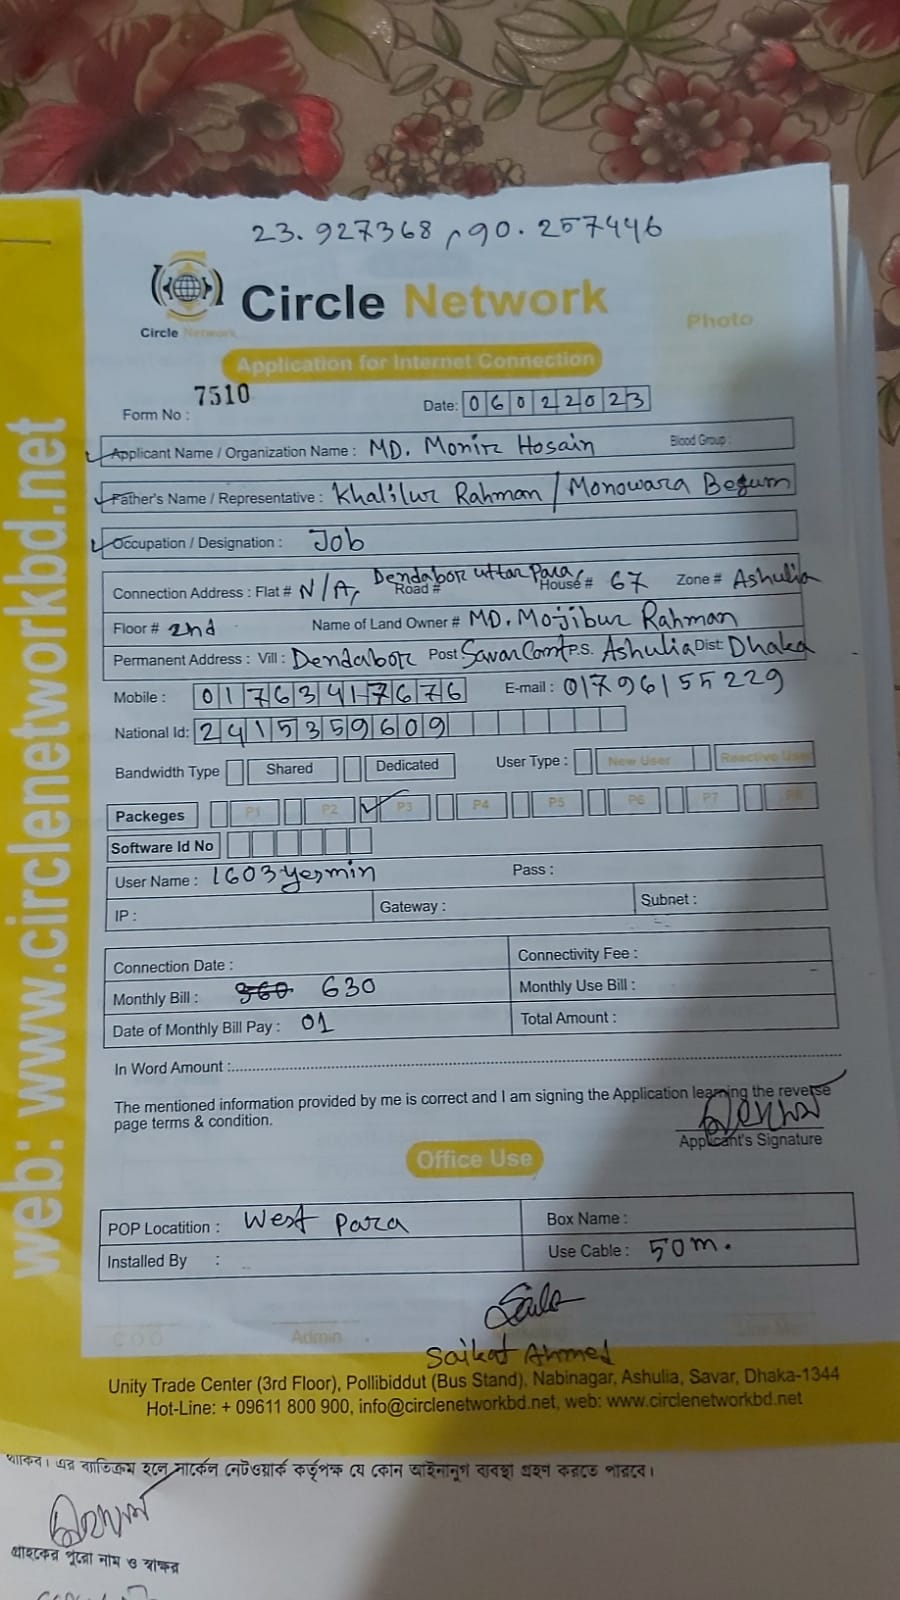 23.927368, 90.257446
Circle Network
Circle Network
Photo
Application for Internet Connection
Form No : 7510
Date: 06022023
Applicant Name / Organization Name : MD. Monir Hosain Blood Group :
Father's Name / Representative : Khalilur Rahman / Monowara Begum
Occupation / Designation : Job
Connection Address : Flat # N/A, Road # Dendabor Uttar Para, House # 67 Zone # Ashulia
Floor # 2nd Name of Land Owner # MD. Mojibur Rahman
Permanent Address : Vill : Dendabor Post Savar Cant P.S. Ashulia Dist: Dhaka
Mobile : 01763417676 E-mail : 01796155229
National Id: 2415359609
Bandwidth Type Shared Dedicated User Type : New User Reactive User
Packeges P1 P2 P3 P4 P5 P6 P7 P8
Software Id No
User Name : 1603yesmin Pass :
IP : Gateway : Subnet :
Connection Date : Connectivity Fee :
Monthly Bill : 360 630 Monthly Use Bill :
Date of Monthly Bill Pay : 01 Total Amount :
In Word Amount :
The mentioned information provided by me is correct and I am signing the Application learning the reverse
page terms & condition.
Applicant's Signature
Office Use
POP Locatition : West Para Box Name :
Installed By : Use Cable : 50m.
C O O Admin
Saikat Ahmed
Unity Trade Center (3rd Floor), Pollibiddut (Bus Stand), Nabinagar, Ashulia, Savar, Dhaka-1344
Hot-Line: + 09611 800 900, info@circlenetworkbd.net, web: www.circlenetworkbd.net
web: www.circlenetworkbd.net
থাকিব। এর ব্যতিক্রম হলে সার্কেল নেটওয়ার্ক কর্তৃপক্ষ যে কোন আইনানুগ ব্যবস্থা গ্রহণ করতে পারবে।
গ্রাহকের পুরো নাম ও স্বাক্ষর